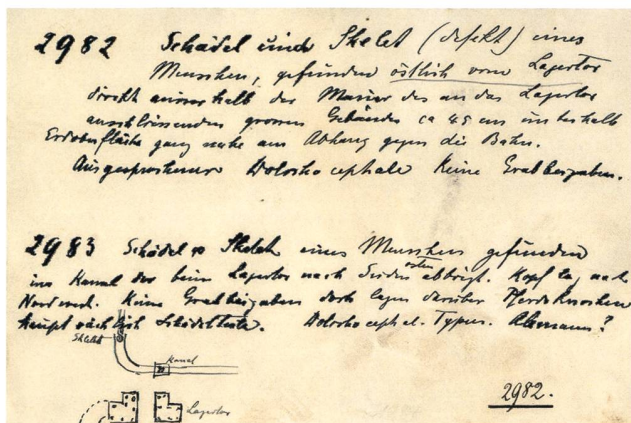 2982 Schädel und Skelet (defekt) eines
Menschen, gefunden östlich vom Lagertor
direkt ausserhalb der Mauer des an das Lagertor
anschliessenden grossen Gebäudes ca 45 cm unterhalb
Erdoberfläche ganz nahe am Abhang gegen die Bahn.
Ausgesprochener Dolichocephale Keine Grabbeigaben.
2983 Schädel & Skelet eines Menschen gefunden
im Kanal der beim Lagertor nach Süden abbiegt. Kopf lag nach
osten
Nord. Keine Grabbeigaben doch lagen darüber Pferdeknochen
hauptsächlich Schädelteile. Dolichocephal. Typus. Alemanne?
Skelet
Kanal
Lagertor
2982.